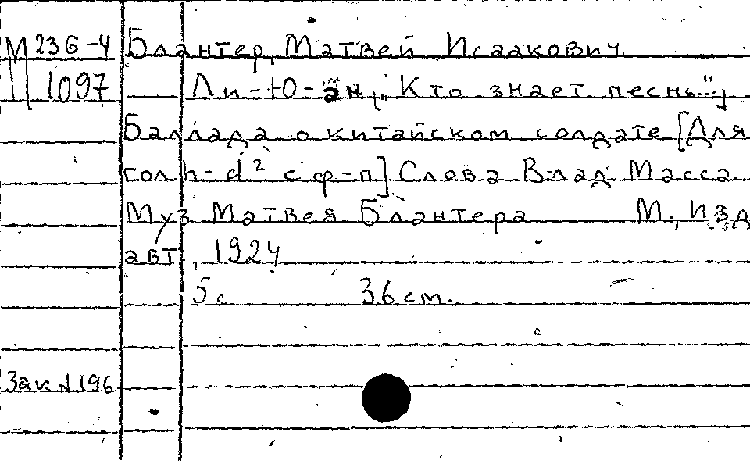 М 236-4 Блантер, Матвей Исаакович
1097 Ли-Ю-ан („Кто знает песнь"...)
Баллада о китайском солдате [Для
гол h-d² с ф-п] Слова Влад Масса
Муз Матвея Блантера М., Изд
авт, 1924
5 с 36 см.
Зак 1196